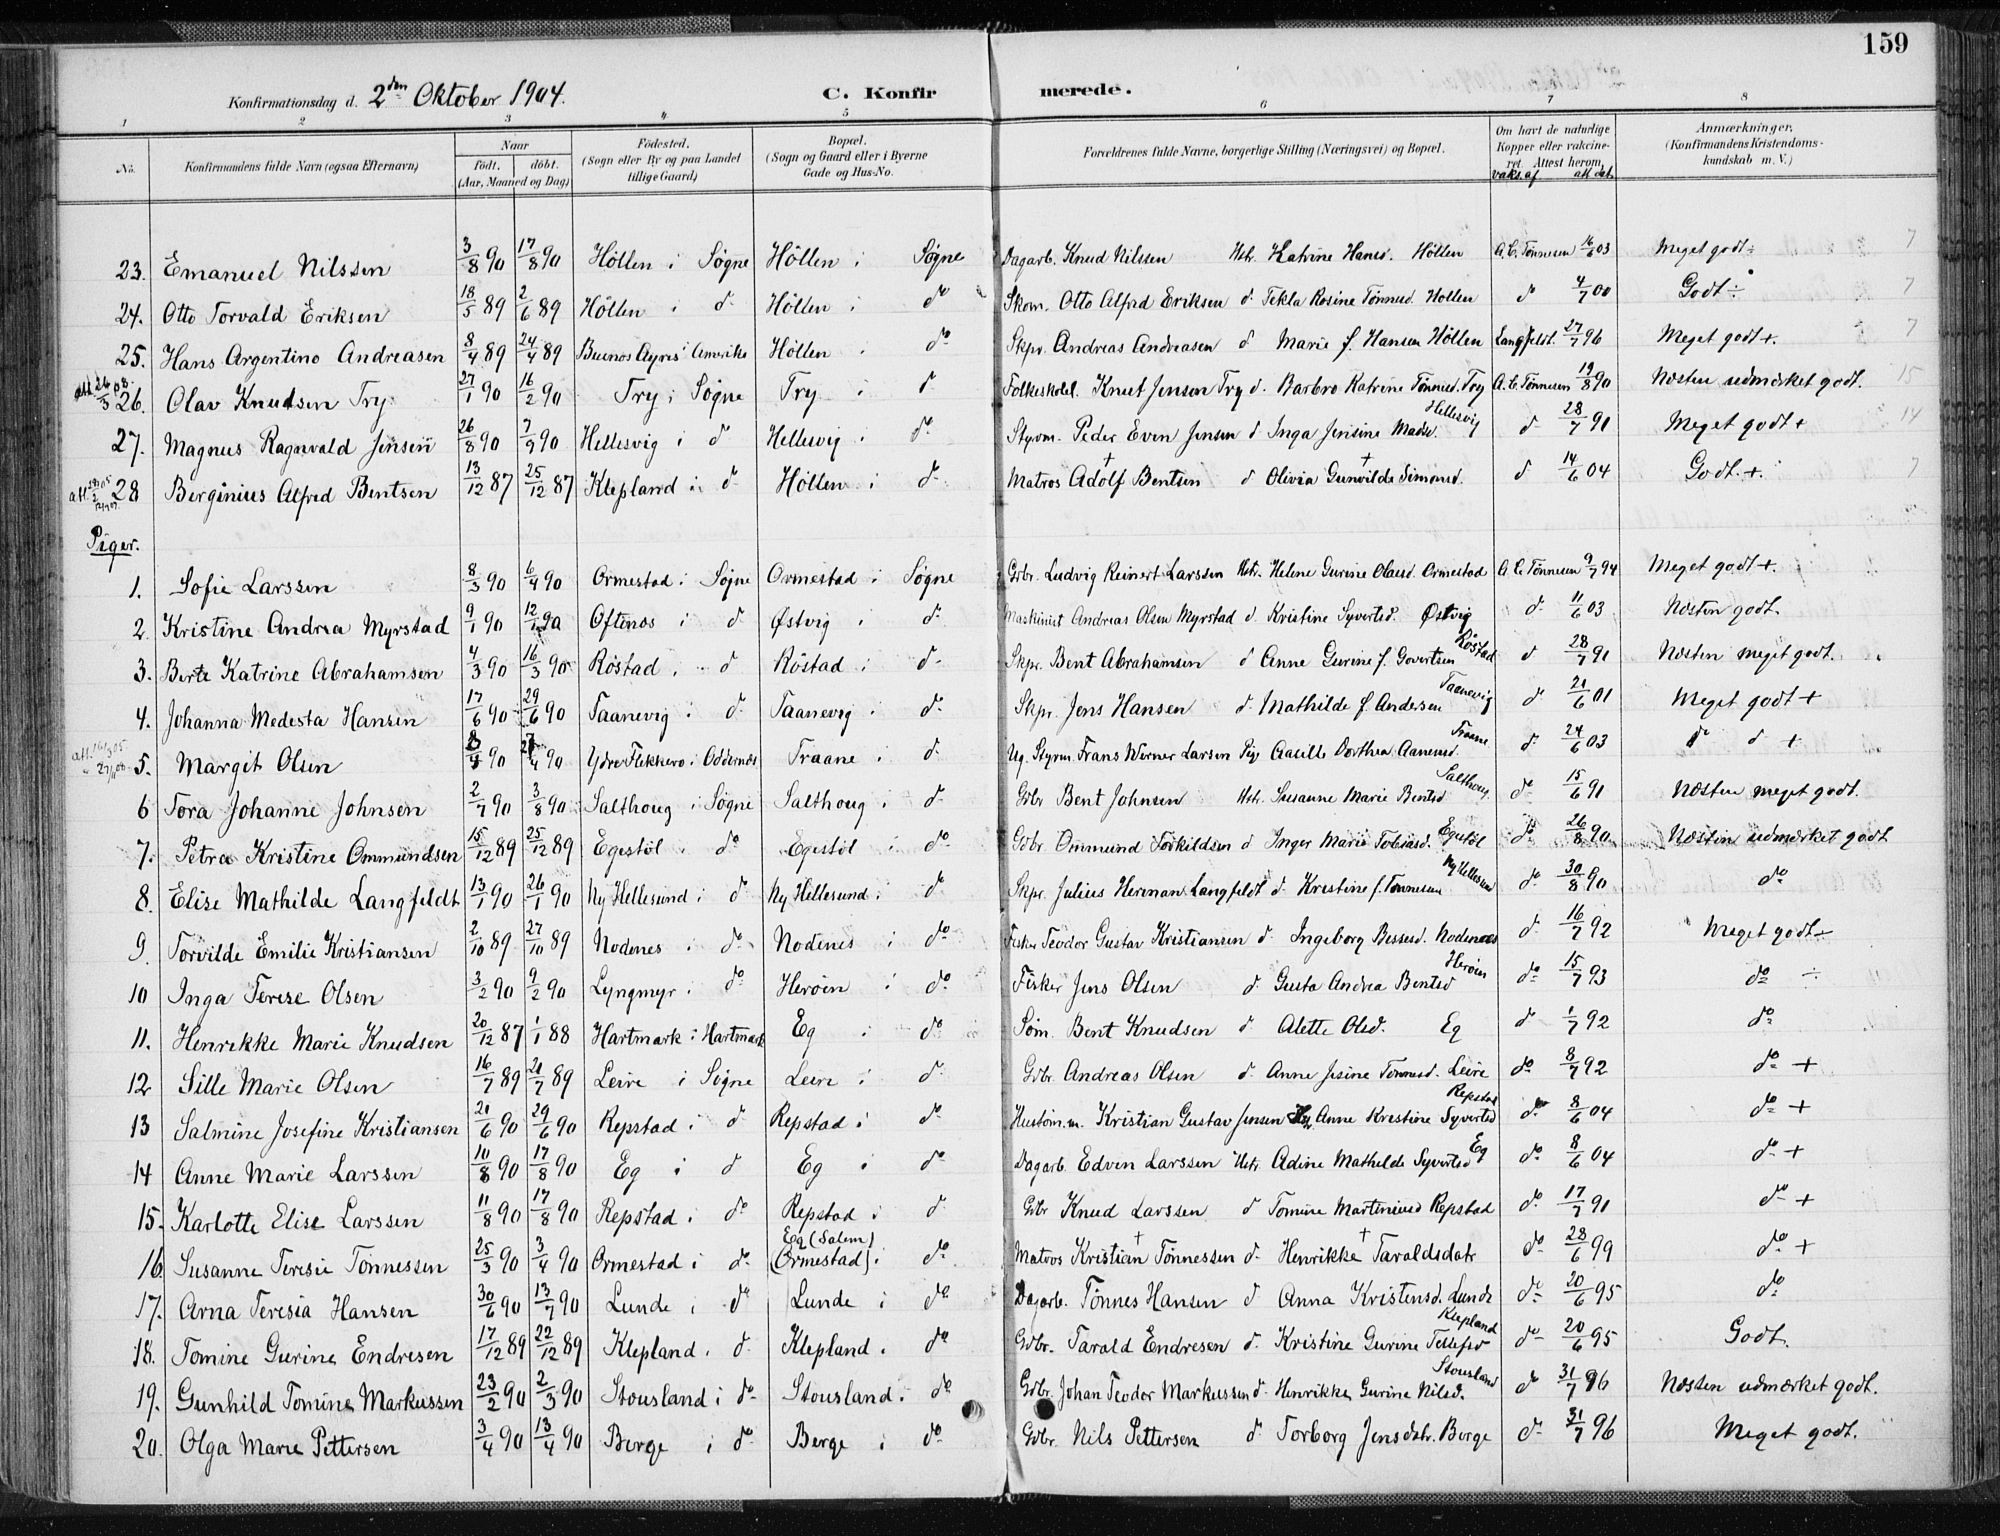 159
Konfirmationsdag d. 2den Oktober 1904. C. Konfirmerede.
1 2 3 4 5 6 7 8
No. Konfirmandens fulde Navn (ogsaa Efternavn) Naar født. døbt. (Aar, Maaned og Dag) Fødested. (Sogn eller By og paa Landet tillige Gaard) Bopæl. (Sogn og Gaard eller i Byerne Gade og Hus-No. Forældrenes fulde Navne, borgerlige Stilling (Næringsvei) og Bopæl. Om havt de naturlige Kopper eller vakcineret. Attest herom. vaks. af att. dat. Anmærkninger. (Konfirmandens Kristendomskundskab m. V.)
23. Emanuel Nilssen 3/8 90 17/8 90 Höllen i Søgne Höllen i Søgne Dagarb. Knud Nilssen Hstr. Katrine Hansd. Höllen A. C. Tønnesen 16/6 03 Meget godt ÷ 7
24. Otto Torvald Eriksen 18/5 89 2/6 89 Höllen i do Höllen i do Skom. Otto Alfred Eriksen do Tekla Rosine Tönnesd. Höllen do 4/7 00 Godt ÷ 7
25. Hans Argentino Andreasen 8/4 89 24/4 89 Buenos Ayres i Amerika Höllen i do Skpr. Andreas Andreasen do Marie f. Hansen Höllen Langfeldt. 27/7 96 Meget godt +. 7
att. 26/3 08. 26. Olav Knudsen Try 27/1 90 16/2 90 Try i Søgne Try i do Folkeskol. Knut Jensen Try do Barbro Katrine Tönnesd. Try A. C. Tönnesen 19/8 90 Næsten udmærket godt. 15
27. Magnus Ragnvald Jensen 26/8 90 7/9 90 Hellesvig i do Hellesvig i do Styrm. Peder Even Jensen do Inga Jensine Madsd. Hellesvig do 28/7 91 Meget godt + 14
28 Berginius Alfred Bentsen 13/12 87 25/12 87 Klepland i do Höllen i do Matros Adolf + Bentsen do Olivia Gunvilde + Simonsd. do 14/6 04 Godt. +. 7
Piger.
1. Sofie Larssen 8/3 90 6/4 90 Ormestad i Søgne Ormestad i Søgne Gdbr. Ludvig Reinert Larssen Hstr. Helene Gurine Olausd. Ormestad A. C. Tönnesen 9/7 94 Meget godt +.
2. Kristine Andrea Myrstad 9/1 90 12/1 90 Oftenes i do Østvig i do Maskinist Andreas Olsen Myrstad do Kristine Syvertsd. Østvig do 11/6 03 Næsten godt.
3. Berte Katrine Abrahamsen 4/3 90 16/3 90 Röstad i do Röstad i do Skpr. Bent Abrahamsen do Anne Gurine f. Govertsen Röstad do 28/7 91 Næsten meget godt.
4. Johanna Medesta Hansen 17/6 90 29/6 90 Taanevig i do Taanevig i do Skpr. Jens Hansen do Mathilde f. Andersen Taanevig do 21/6 01 Meget godt +
5. Margit Olsen 90 90 Ydre Flekkerø i Oddernes Traane i do Ug. Styrm. Frans Werner Larsen Pige Dorthea Aanensd. Traane do 24/6 03 do do +
6 Tora Johanne Johnsen 2/7 90 3/8 90 Salthoug i Søgne Salthoug i do Gdbr Bent Johnsen Hstr. Susanne Marie Bentsd Salthoug do 15/6 91 Næsten meget godt.
7. Petra Kristine Ommundsen 15/12 89 25/12 89 Egestöl i do Egestöl i do Gdbr. Ommund Torkildsen do Inger Marie Tobiasd. Egestöl do 26/8 90 Næsten udmærket godt
8. Elise Mathilde Langfeldt 13/1 90 26/1 90 Ny Hellesund i do Ny Hellesund i do Skpr. Julius Herman Langfeldt do Kristine f. Tønnesen Ny Hellesund do 30/8 90 do
9. Torvilde Emilie Kristiansen 2/10 89 27/10 89 Nodenes i do Nodenes i do Fisker Teodor Gustav Kristiansen do Ingeborg Bessesd. Nodenes do 16/7 92 Meget godt ÷
10 Inga Terese Olsen 3/2 90 9/2 90 Lyngmyr i do Heröen i do Fisker Jens Olsen do Gusta Andrea Bentsd Heröen do 15/7 93 do ÷
11. Henrikke Marie Knudsen 20/12 87 1/1 88 Hartmark i Hartmark Eg i do Søm. Bent Knudsen do Alette Olsd. Eg do 1/7 92 do
12 Sille Marie Olsen 16/7 89 20/7 89 Leire i Søgne Leire i do Gdbr. Andreas Olsen do Anne Jesine Tønnesd. Leire do 8/7 92 do +
13 Salmine Josefine Kristiansen 21/6 90 29/6 90 Repstad i do Repstad i do Hustöm.m. Kristian Gustav Jensen Anne Kristine Syvertsd Repstad do 8/6 04 do +
14 Anne Marie Larssen 10/8 90 17/8 90 Eg i do Eg i do Dagarb. Edvin Larssen Hstr. Adine Mathilde Syvertsd Eg do 8/6 04 do +
15. Karlotte Elise Larssen 11/8 90 17/8 90 Repstad i do Repstad i do Gdbr Knud Larssen do Tomine Martiniusd Repstad do 17/7 91 do +
16 Susanne Teresie Tönnessen 25/3 90 3/4 90 Ormestad i do Eg (Salem) (Ormestad) i do Matros Kristian + Tönnessen do Henrikke + Taraldsdatr do 28/6 99 do +
17. Arna Teresia Hansen 30/6 90 13/7 90 Lunde i do Lunde i do Dagarb. Tönnes Hansen do Anna Kristensd. Lunde do 20/6 95 do
18. Tomine Gurine Endresen 17/12 89 22/12 89 Klepland i do Klepland i do Gdbr. Tarald Endresen do Kristine Gurine Tellefsd Klepland do 20/6 95 Godt.
19. Gunhild Tomine Markussen 23/2 90 2/3 90 Stousland i do Stousland i do Gdbr. Johan Teodor Markussen do Henrikke Gurine Nilsd. Stousland do 31/7 96 Næsten udmærket godt.
20. Olga Marie Pettersen 3/4 90 13/4 90 Berge i do Berge i do Gdbr. Nils Pettersen do Torborg Jensdatr. Berge do 31/7 96 Meget godt.